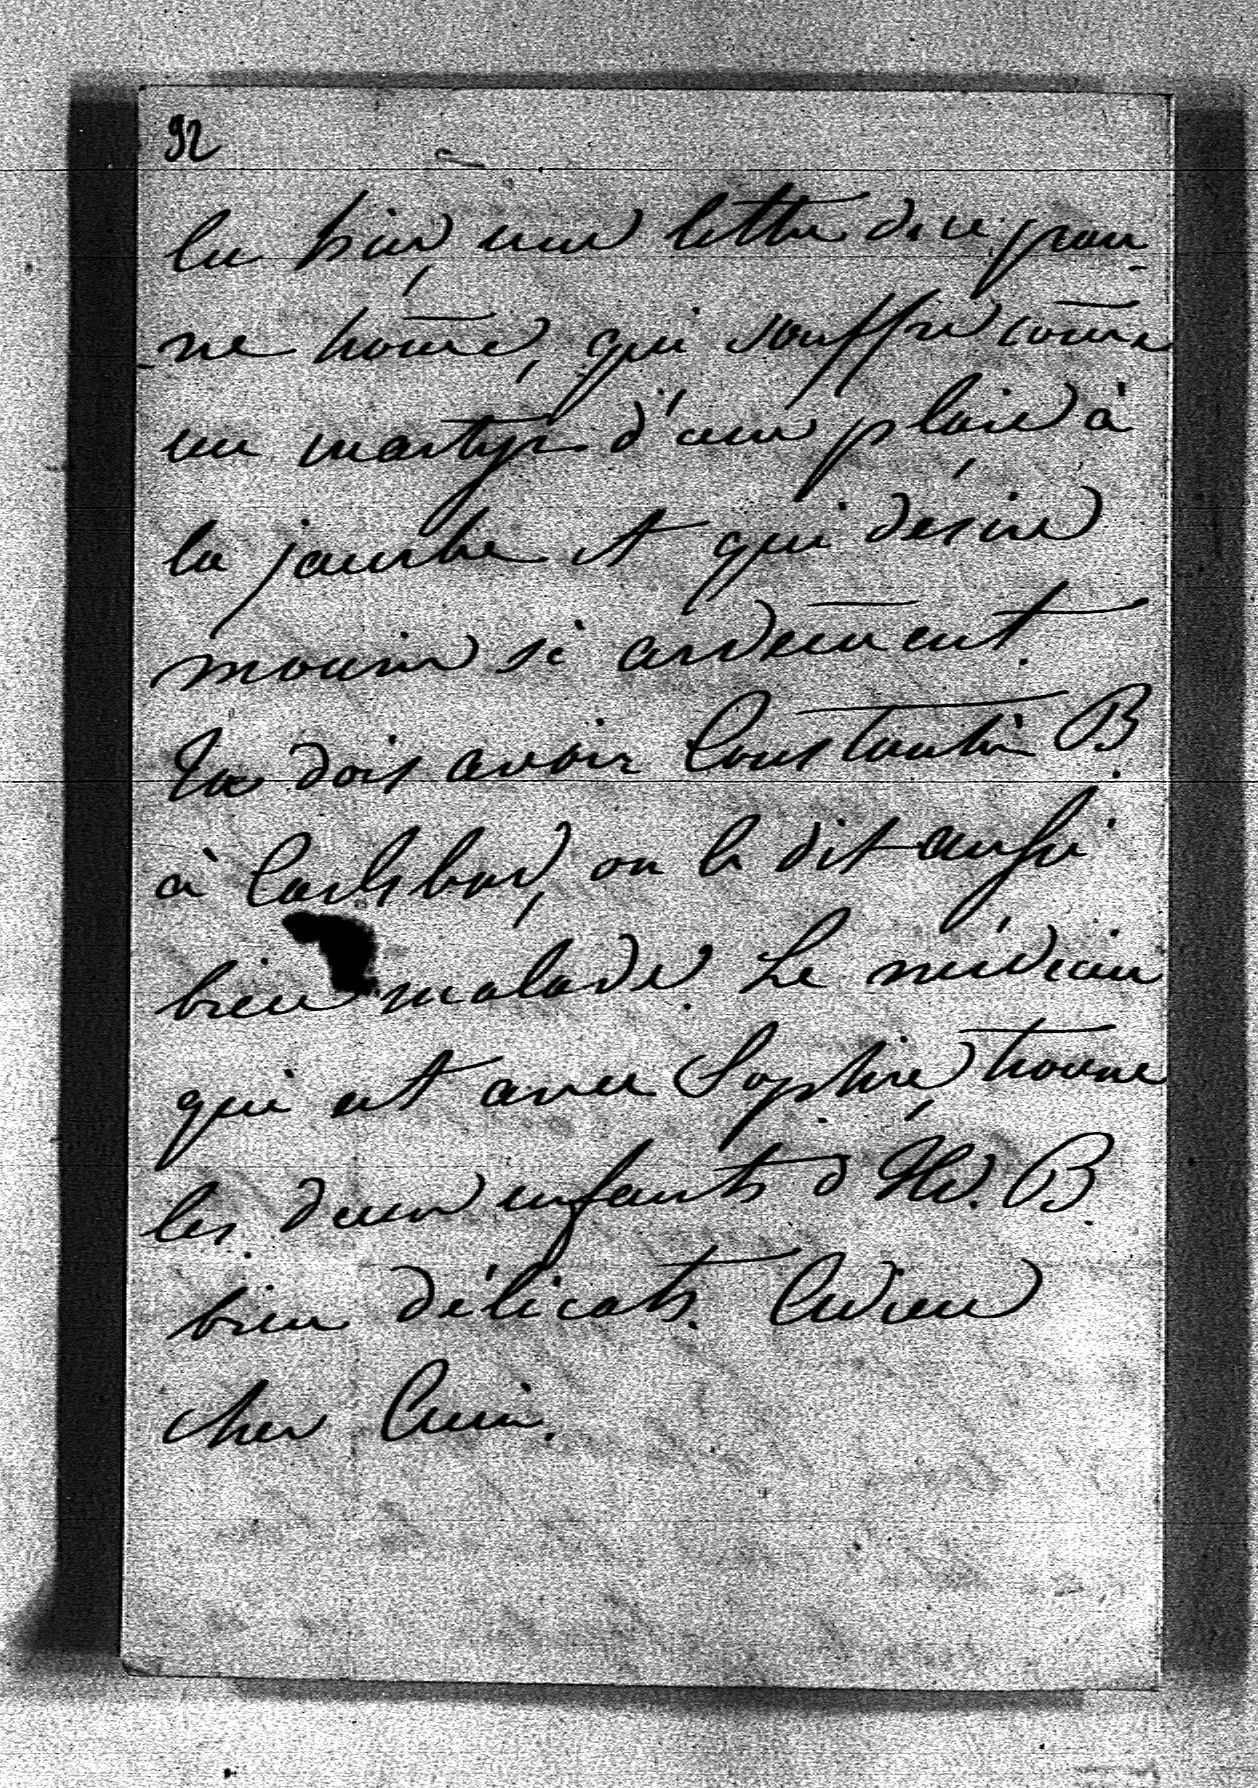 92
lu hier, une lettre de ce jeu-
ne hom̄e, qui souffre com̄e
un martyr d'une plaie à
la jambe et qui désire
mourir si ardem̄ent.
Tu dois avoir Constantin B.
à Carlsbad, on le dit aussi
bien malade. Le médecin
qui est avec Sophie, trouve
les deux enfants d B.
bien délicats. Adieu
cher Ami.